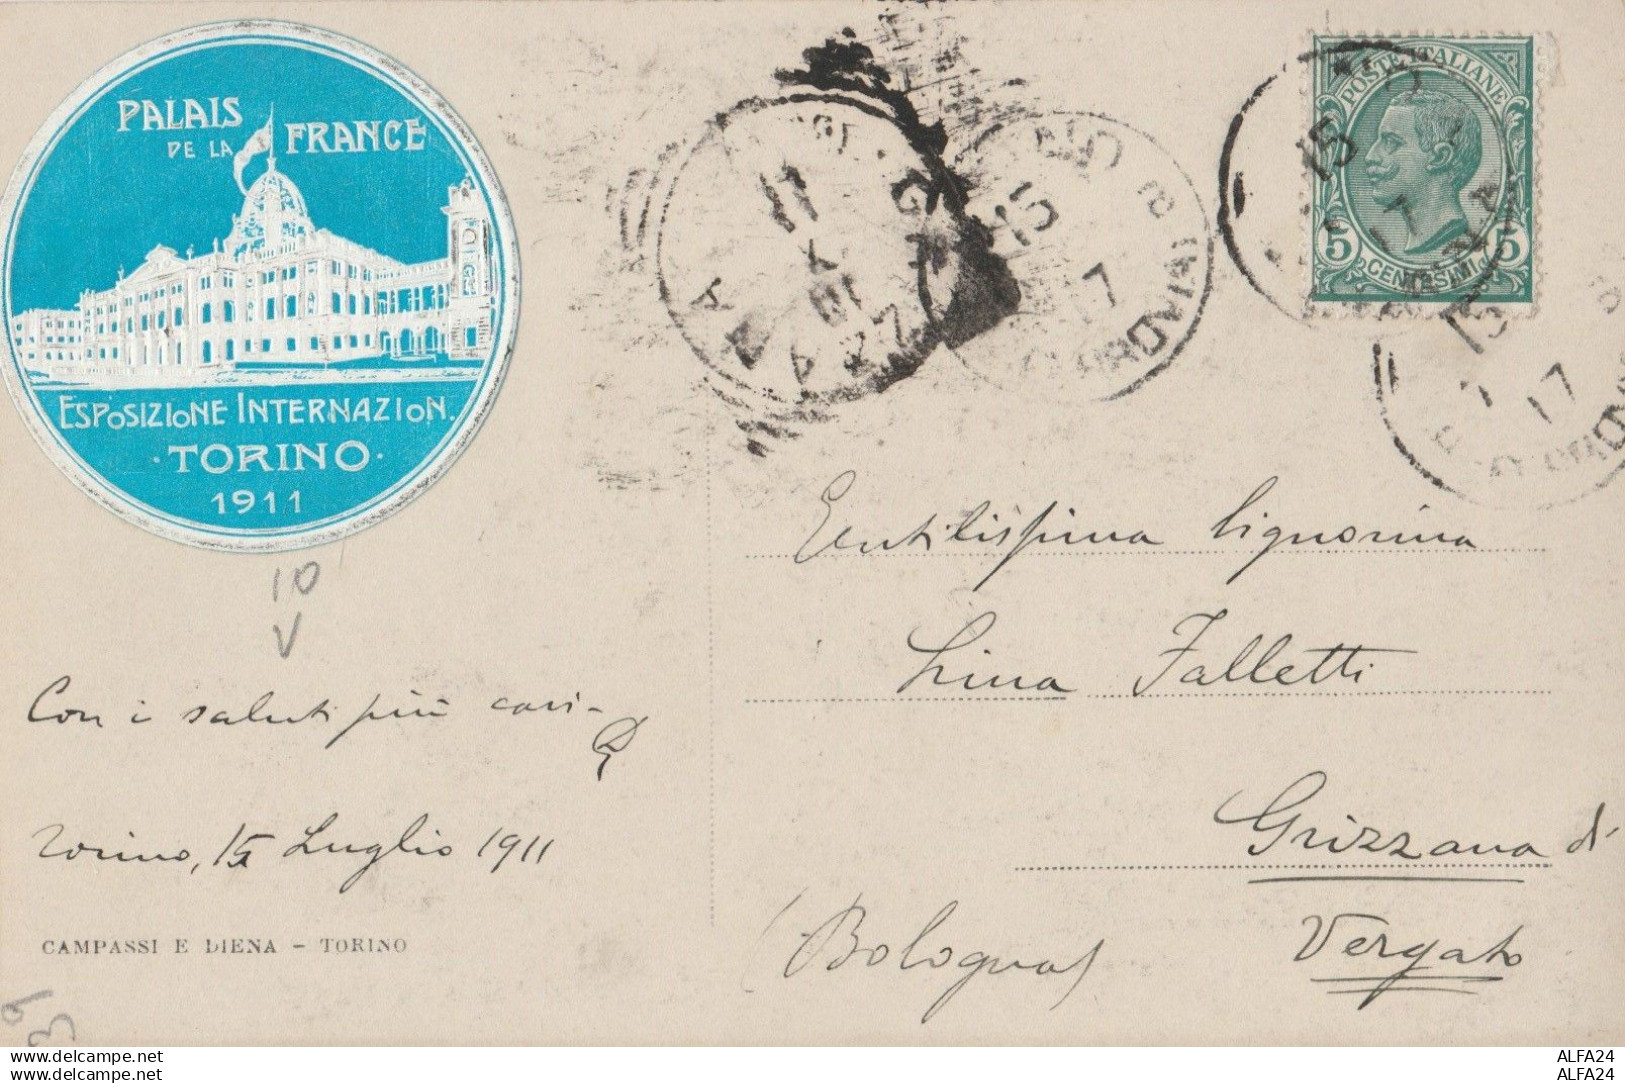 PALAIS
DE LA FRANCE
ESPOSIZIONE INTERNAZION.
· TORINO ·
1911
POSTE ITALIANE
5 5
CENTESIMI
15
7
17
10
V
Gentilissima Signorina
Lina Falletti
Grizzana di
Vergato
(Bologna)
Con i saluti più cari -
Torino, 15 Luglio 1911
CAMPASSI E DIENA - TORINO
www.delcampe.net
www.delcampe.net
ALFA24
ALFA24